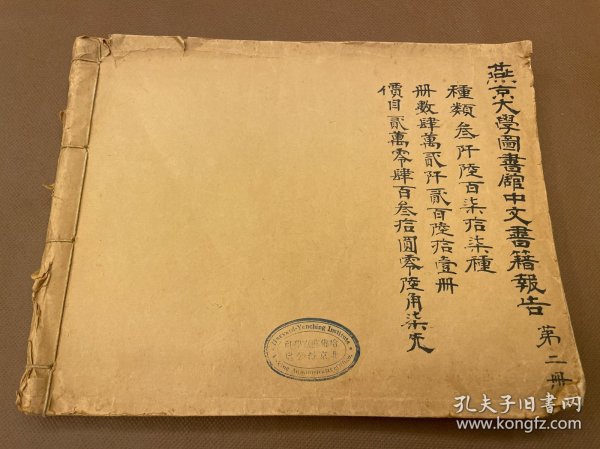 燕京大學圖書館中文書籍報告 第二冊
種類叁阡陸百柒拾柒種
册數肆萬貳阡貳百陸拾壹册
價目貳萬零肆百叁拾圓零陸角柒先
Harvard-Yenching Institute
孔夫子旧书网
www.kongfz.com